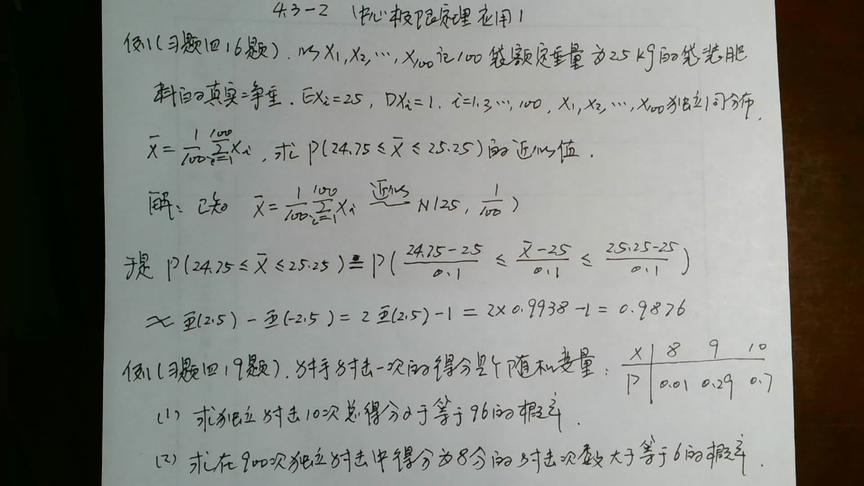 4.3-2 中心极限定理应用1
例1(习题四16题). 以X₁,X₂,…,X₁₀₀记100袋额定重量为25kg的袋装肥
料的真实净重. EXᵢ=25, DXᵢ=1. i=1,2…,100, X₁,X₂,…,X₁₀₀独立同分布,
X̄=1/100 ∑_{i=1}^{100} Xᵢ, 求P(24.75≤X̄≤25.25)的近似值.
解: 已知 X̄=1/100 ∑_{i=1}^{100} Xᵢ 近似~ N(25, 1/100)
于是 P(24.75≤X̄≤25.25)=P((24.75-25)/0.1 ≤ (X̄-25)/0.1 ≤ (25.25-25)/0.1)
≈ Φ(2.5)-Φ(-2.5)=2Φ(2.5)-1=2×0.9938-1=0.9876
例1(习题四19题). 射手射击一次的得分是个随机变量: X 8 9 10
P 0.01 0.29 0.7
(1) 求独立射击10次总得分大于等于96的概率.
(2) 求在900次独立射击中得分为8分的射击次数大于等于6的概率.